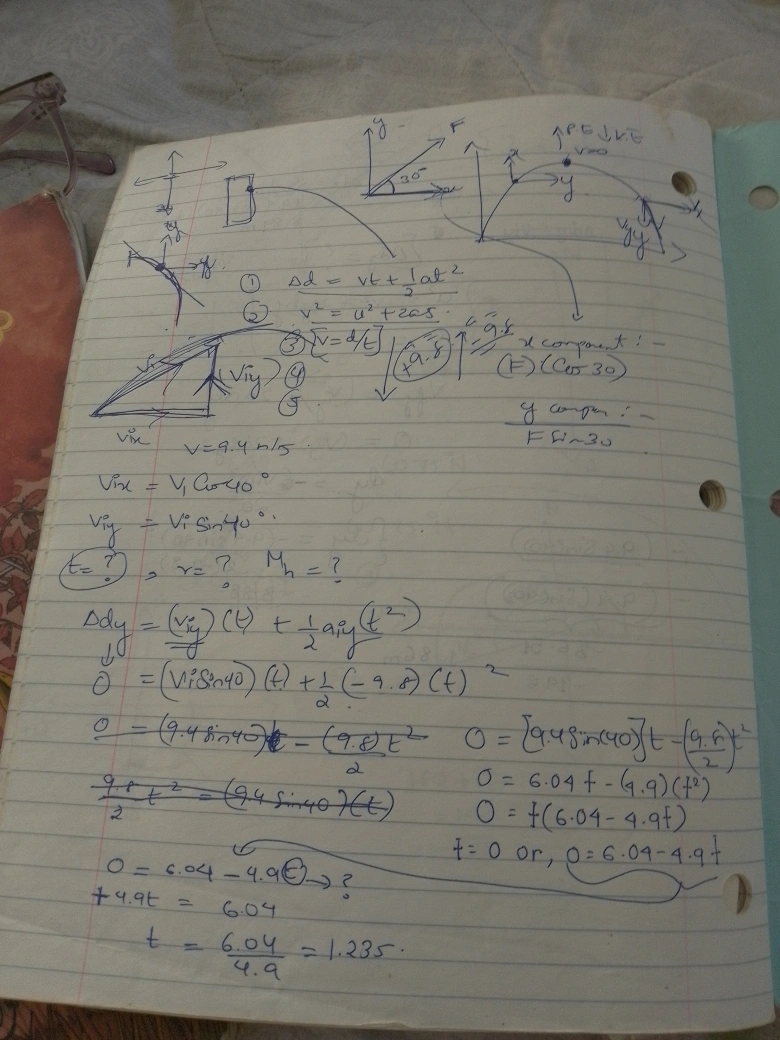 y
F
30°
x
P.E ↓ K.E
v=0
x
y
Vy
① Δd = vt + 1/2 at²
② v² = u² + 2as.
③ [v = d/t]
+9.8
-9.8
④
⑤
(Viy)
Vi
Vix
x component :-
(F) (Cos 30)
y compon :-
F Sin 30
v = 9.4 m/s.
Vix = Vi Cos 40°
Viy = Vi Sin 40°.
t = ? , r = ? Mh = ?
Δdy = (Viy) (t) + 1/2 aiy (t²)
0 = (Vi Sin 40) (t) + 1/2 (-9.8) (t)²
0 = (9.4 sin 40) t - (9.8)/2 t²
9.8/2 t² = (9.4 sin 40) (t)
0 = [9.4 Sin(40)] t - (9.8/2) t²
0 = 6.04 t - (4.9) (t²)
0 = t (6.04 - 4.9t)
t = 0 or, 0 = 6.04 - 4.9 t
0 = 6.04 - 4.9 t → ?
+ 4.9t = 6.04
t = 6.04/4.9 = 1.235.